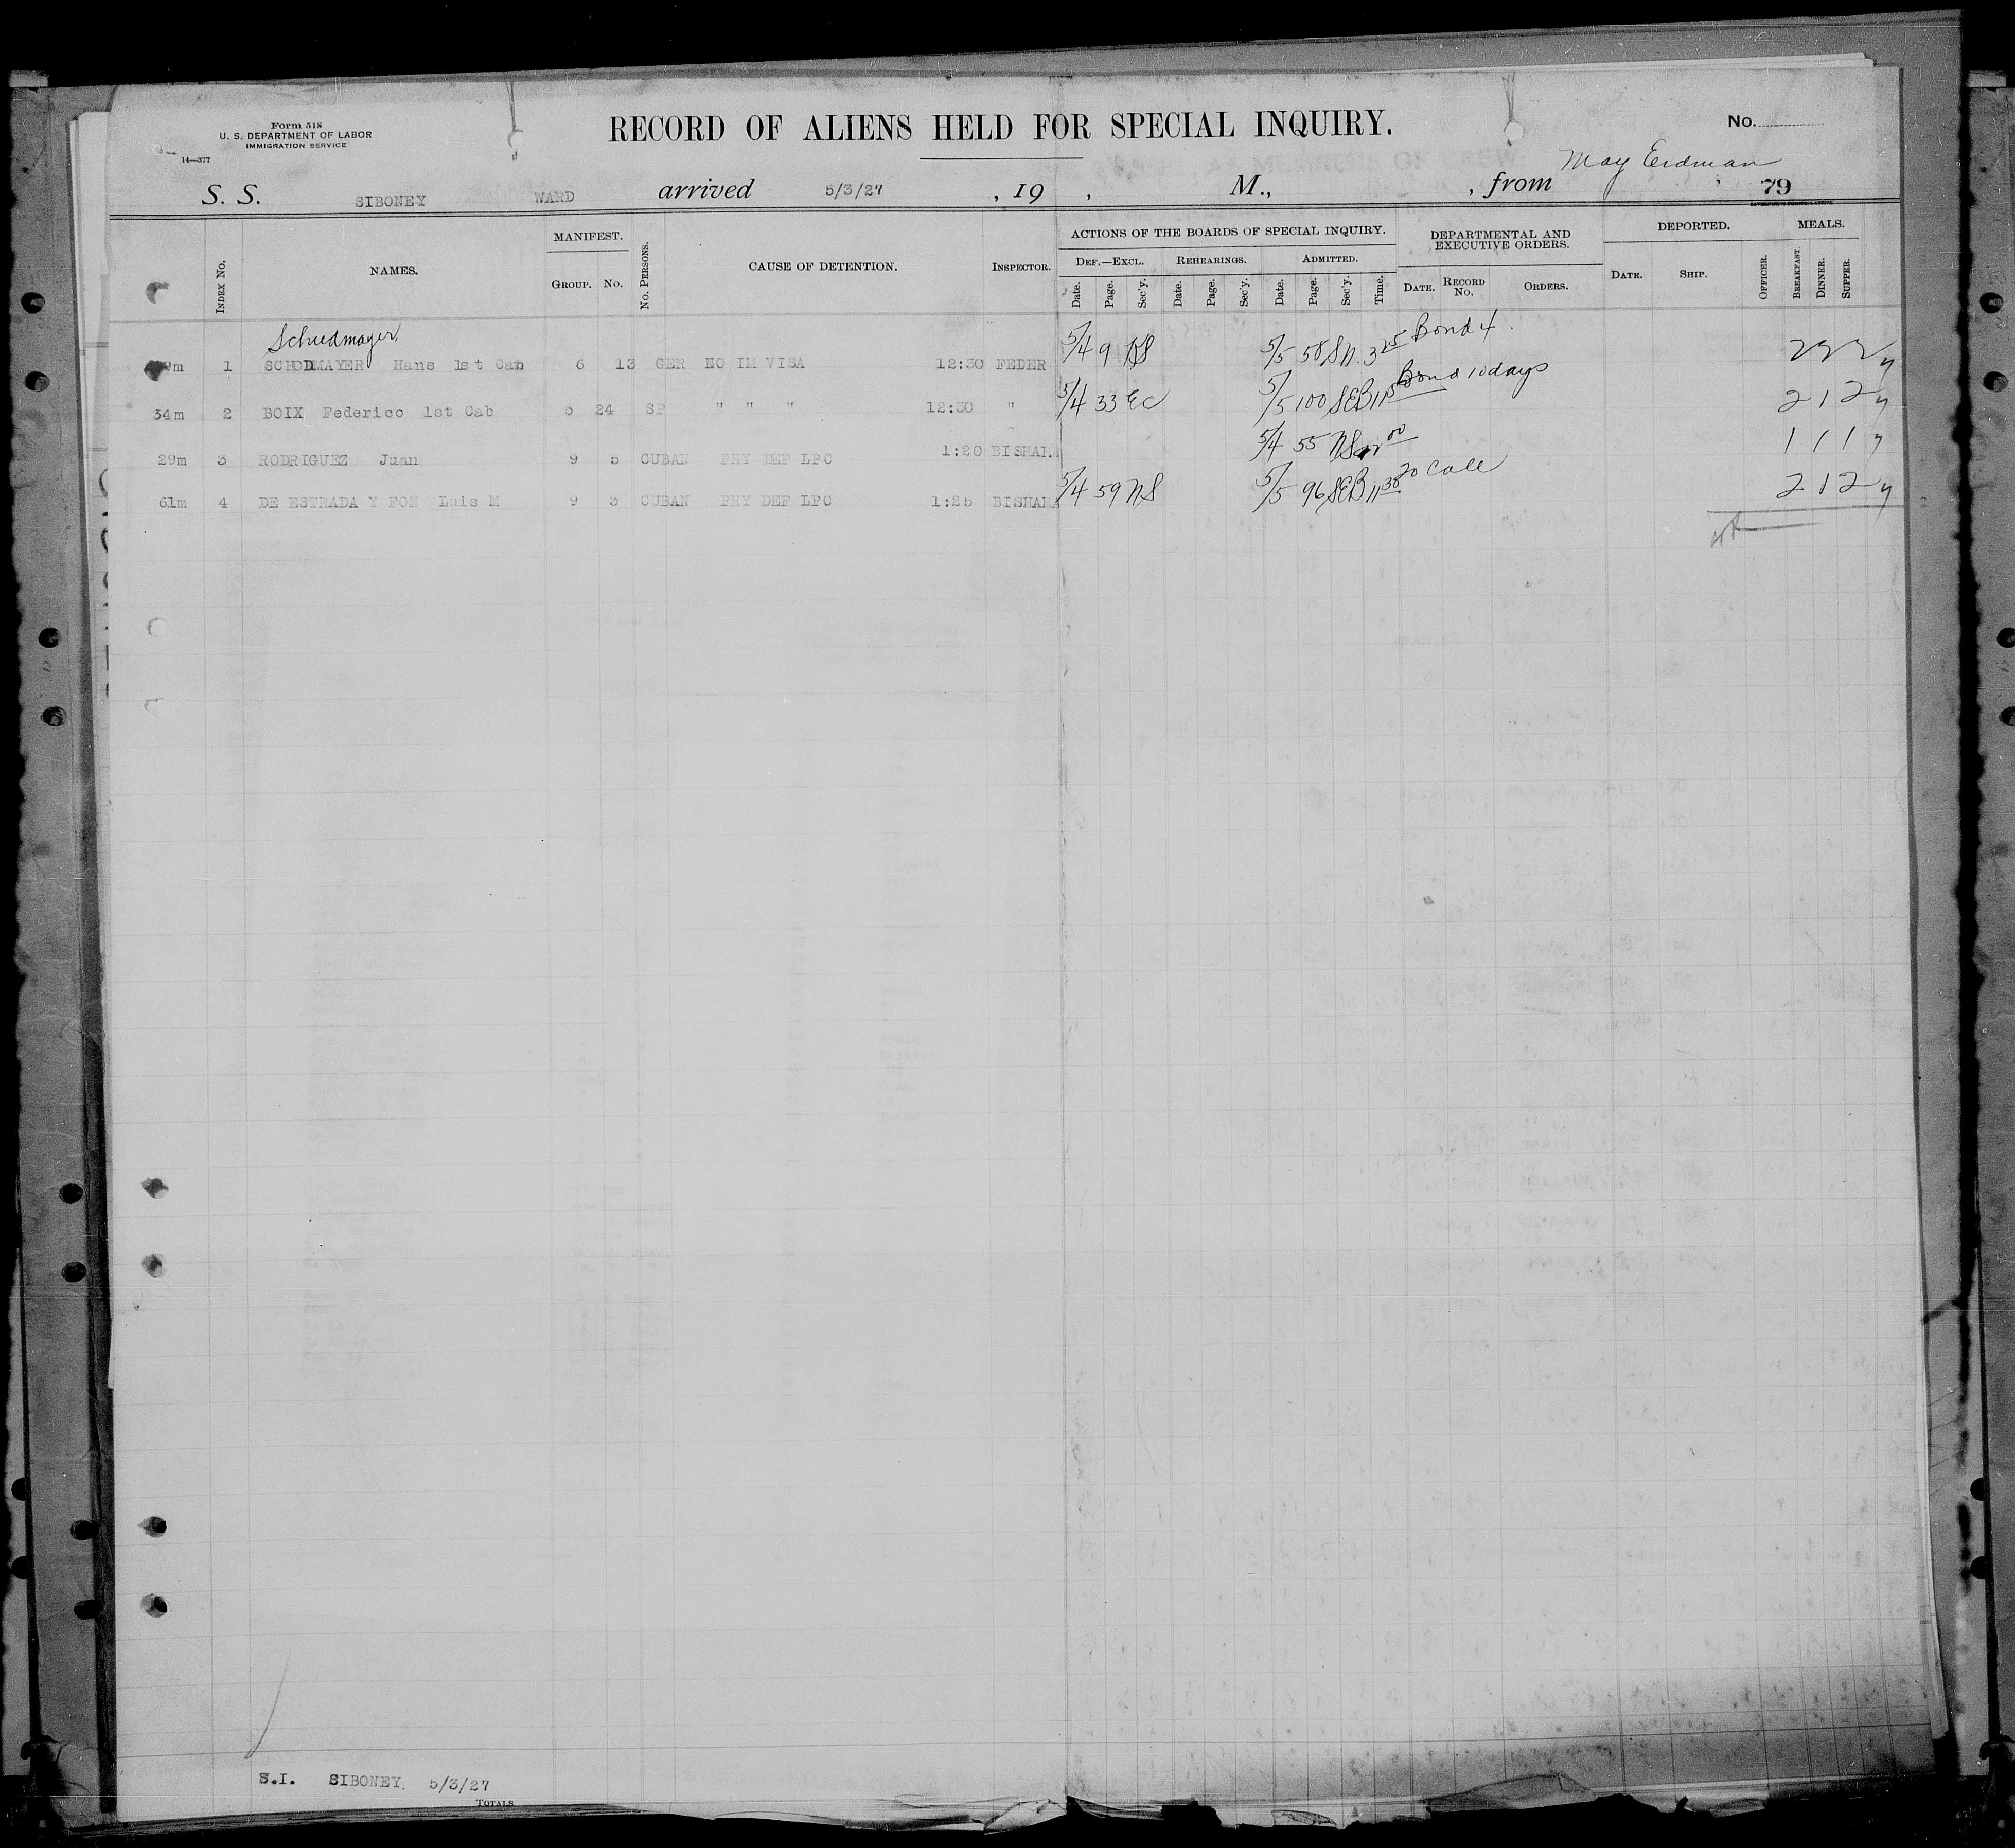 Form 518
U. S. DEPARTMENT OF LABOR
IMMIGRATION SERVICE
14—377
RECORD OF ALIENS HELD FOR SPECIAL INQUIRY.
No.
May Erdman
S. S. SIBONEY WARD arrived 5/3/27, 19 , M., , from 79
INDEX No. NAMES. MANIFEST. GROUP. No. No. PERSONS. CAUSE OF DETENTION. INSPECTOR. ACTIONS OF THE BOARDS OF SPECIAL INQUIRY. DEF.—EXCL. Date. Page. Sec'y. REHEARINGS. Date. Page. Sec'y. ADMITTED. Date. Page. Sec'y. Time. DEPARTMENTAL AND EXECUTIVE ORDERS. DATE. RECORD No. ORDERS. DEPORTED. DATE. SHIP. OFFICER. MEALS. BREAKFAST. DINNER. SUPPER.
Schiedmayer
9m 1 SCHODMAYER Hans 1st Cab 6 13 GER NO IM VISA 12:30 FEDER 5/4 9 NS 5/5 58 SN 3 25 Bond 4 2 2 2
34m 2 BOIX Federico 1st Cab 5 24 SP " " " 12:30 " 5/4 33 EC 5/5 100 SEB 11 Bond 10 days 2 1 2
29m 3 RODRIGUEZ Juan 9 5 CUBAN PHY DEF LPC 1:20 BISHAL 5/4 55 NS 00 1 1 1
61m 4 DE ESTRADA Y FON Luis M 9 3 CUBAN PHY DEF LPC 1:25 BISHAL 5/4 59 NS 5/5 96 SEB 11 30 to Call 2 1 2
S.I. SIBONEY 5/3/27
TOTALS